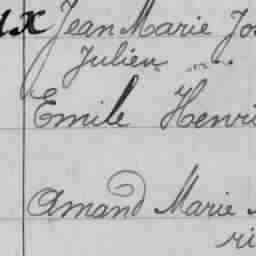 ux Jean Marie Jo
Julien
Emile Henri
Amand Marie
ri